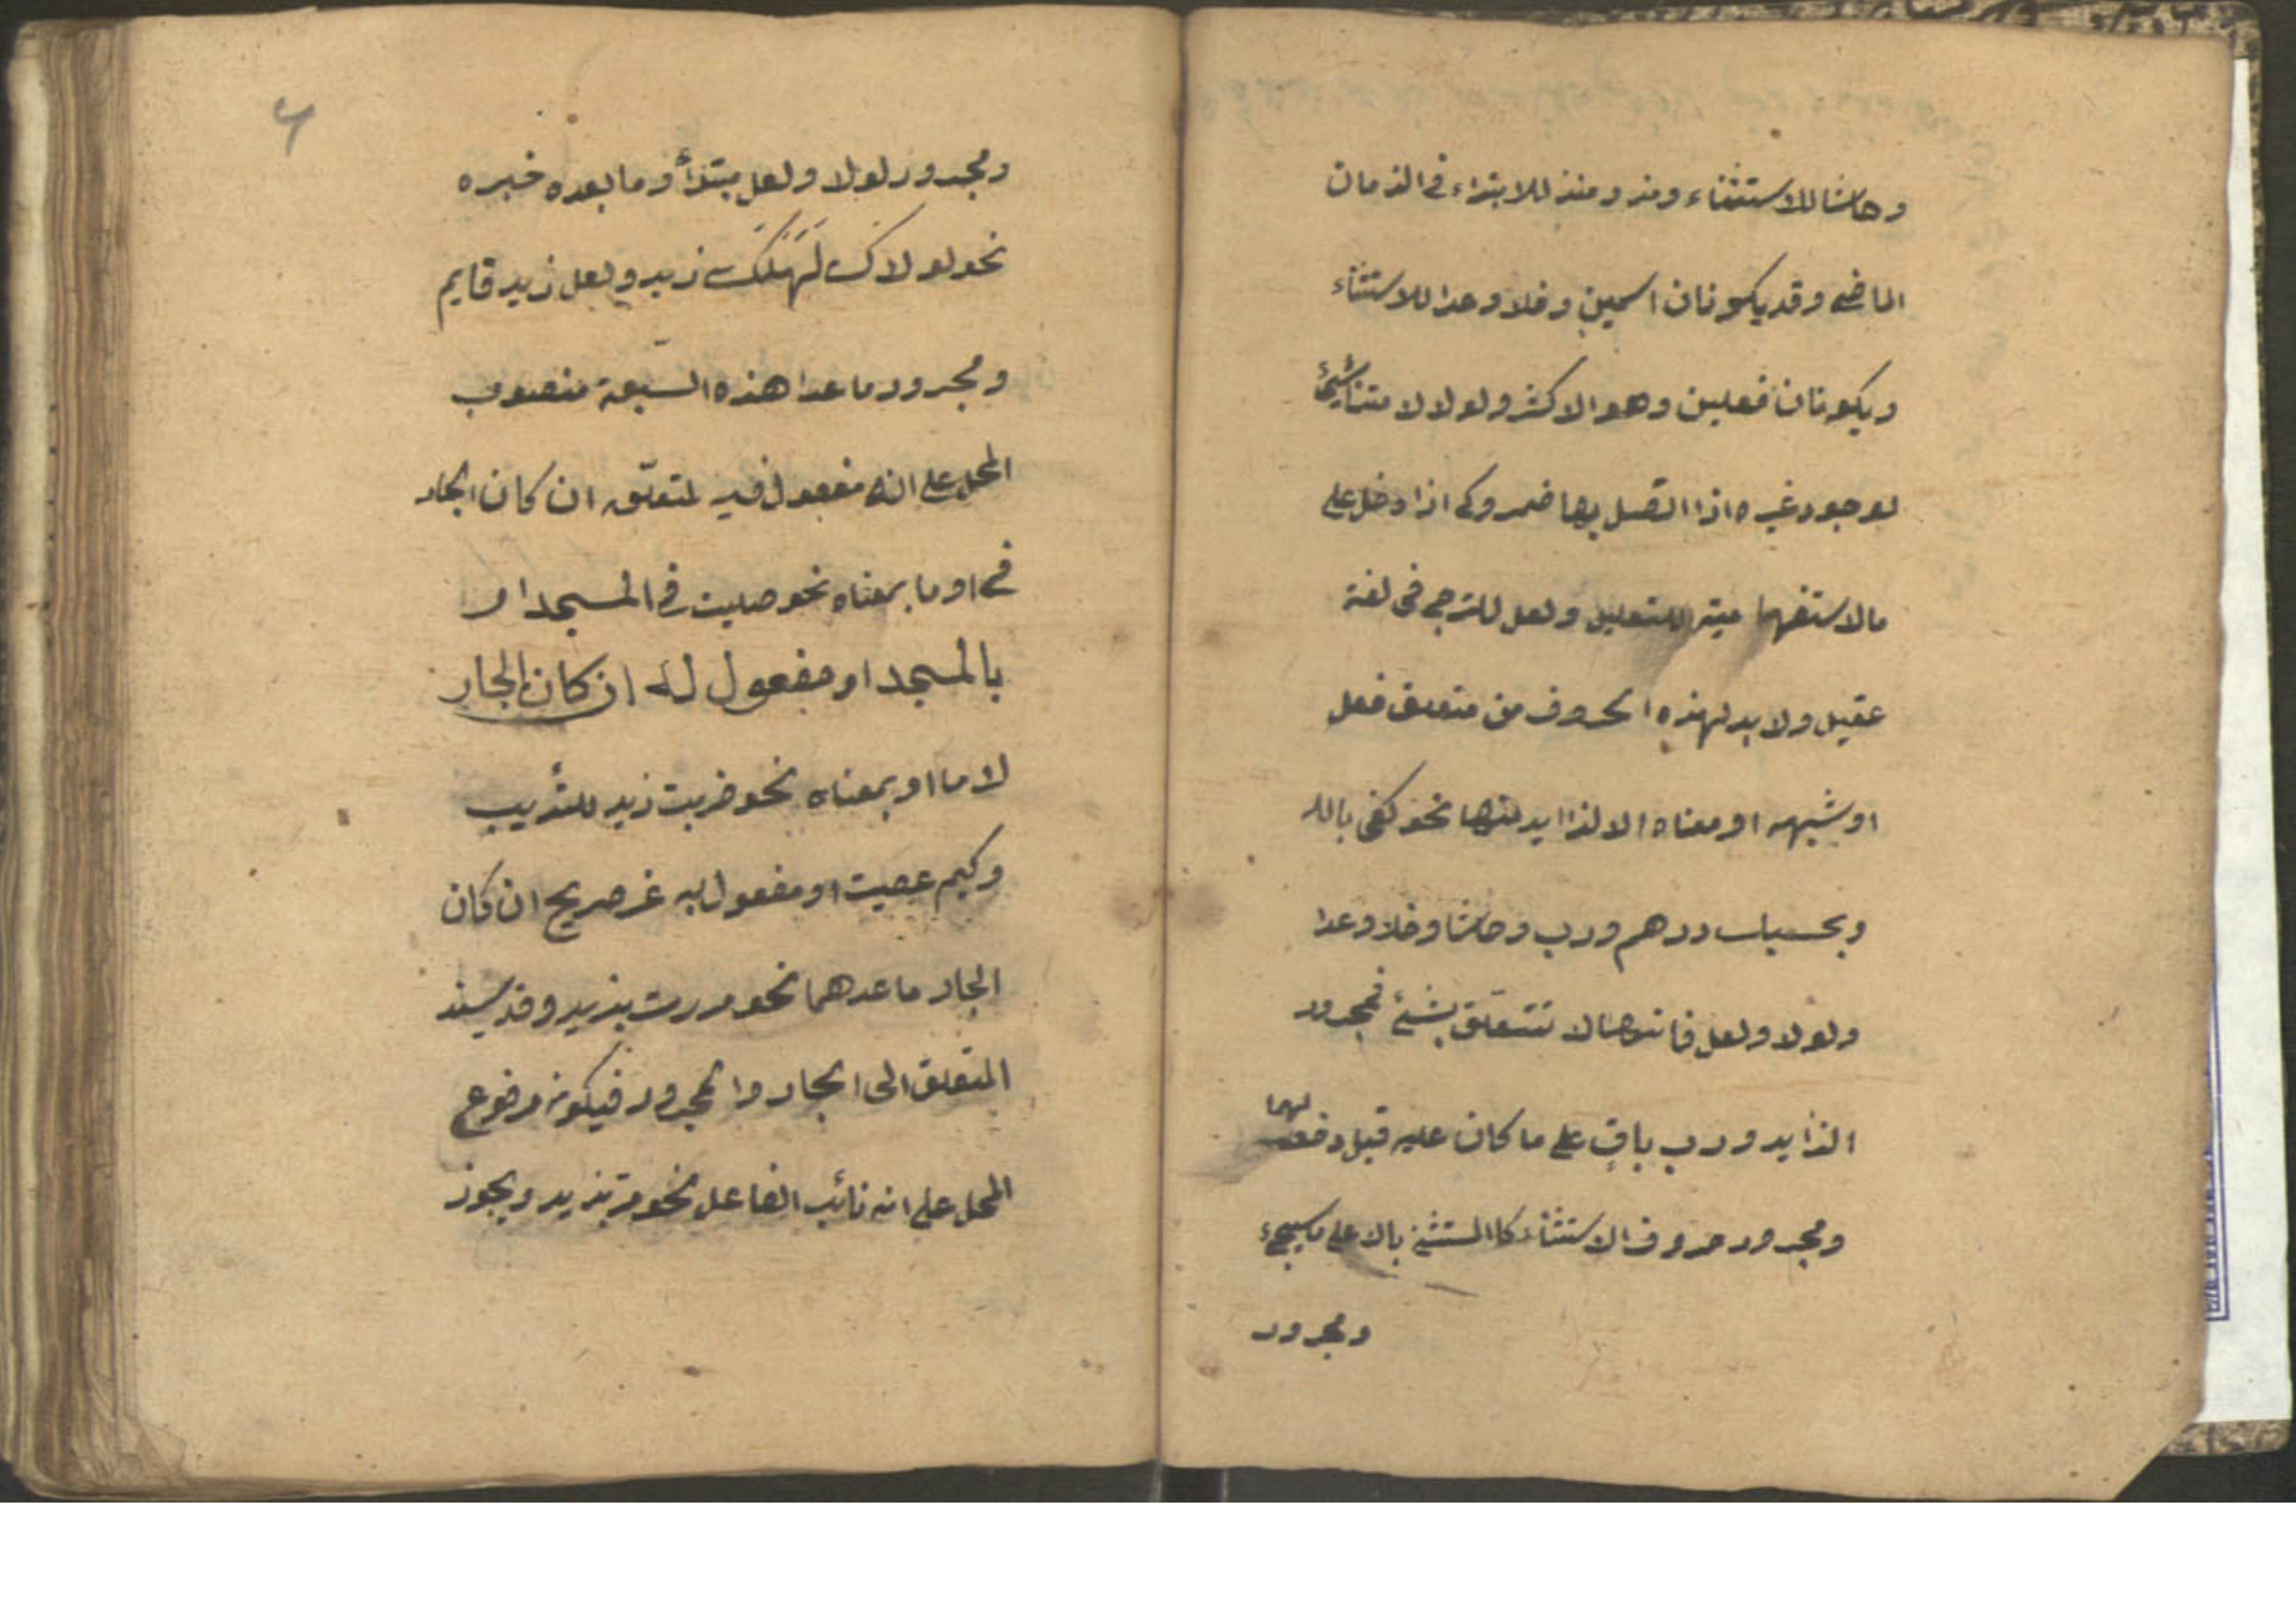 وحاشا للاستثناء ومذ ومنذ للابتداء في الزمان
الماضي وقد يكونان اسمين وخلا وعدا للاستثناء
ويكونان فعلين وهو الاكثر ولولا لامتناع شيئ
لوجود غيره اذا اتصل بها ضمير وكي اذا دخل على
ما الاستفهامية للتعليل ولعل للترجي في لغة
عقيل ولا بد لهذه الحروف من متعلق فعل
او شبهه او معناه الا لزايد منها نحو كفى بالله
وبحسبك درهم ورب وحاشا وخلا وعدا
ولولا ولعل فانها لا تتعلّق بشئ فمجرور
الزايد ورب باق على ما كان عليه قبل دخولهما
ومجرور حروف الاستثناء كالمستثنى بالا على ما سيجيء
ومجرور
٦
ومجرور لولا ولعل مبتدأ وما بعده خبره
نحو لولاك لَهَلَكَ زيد ولعل زيد قايم
ومجرور ما عدا هذه السّبعة منصوب
المحل على انه مفعول فيه لمتعلّقه ان كان الجار
في او ما بمعناه نحو صليت في المسجد او
بالمسجد او مفعول له ان كان الجار
لاما او بمعناه نحو ضربت زيد للتأديب
وكيم عصيت او مفعول به غير صريح ان كان
الجار ما عدهما نحو مررت بزيد وقد يسند
المتعلق الى الجار والمجرور فيكون مرفوع
المحل على انه نائب الفاعل نحو مرّ بزيد ويجوز